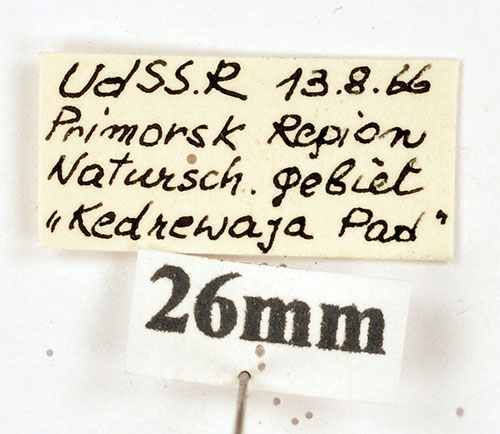 UdSS.R 13.8.66
Primorsk Region
Natursch. gebiet
„Kedrewaja Pad"
26mm